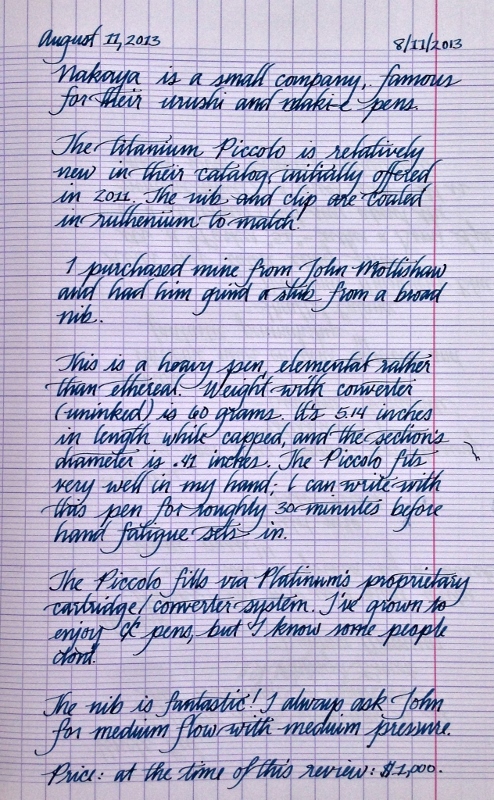 August 11, 2013 8/11/2013
Nakaya is a small company, famous
for their urushi and maki-e pens.
The titanium Piccolo is relatively
new in their catalog initially offered
in 2011. The nib and clip are coated
in ruthenium to match.
I purchased mine from John Mottishaw
and had him grind a stub from a broad
nib.
This is a heavy pen, elemental rather
than ethereal. Weight with converter
(uninked) is 60 grams. It's 5.14 inches
in length while capped, and the section's
diameter is .41 inches. The Piccolo fits
very well in my hand; I can write with
this pen for roughly 30 minutes before
hand fatigue sets in.
The Piccolo fills via Platinum's proprietary
cartridge/converter system. I've grown to
enjoy CC pens, but I know some people
don't.
The nib is fantastic! I always ask John
for medium flow with medium pressure.
Price: at the time of this review: $1,000.